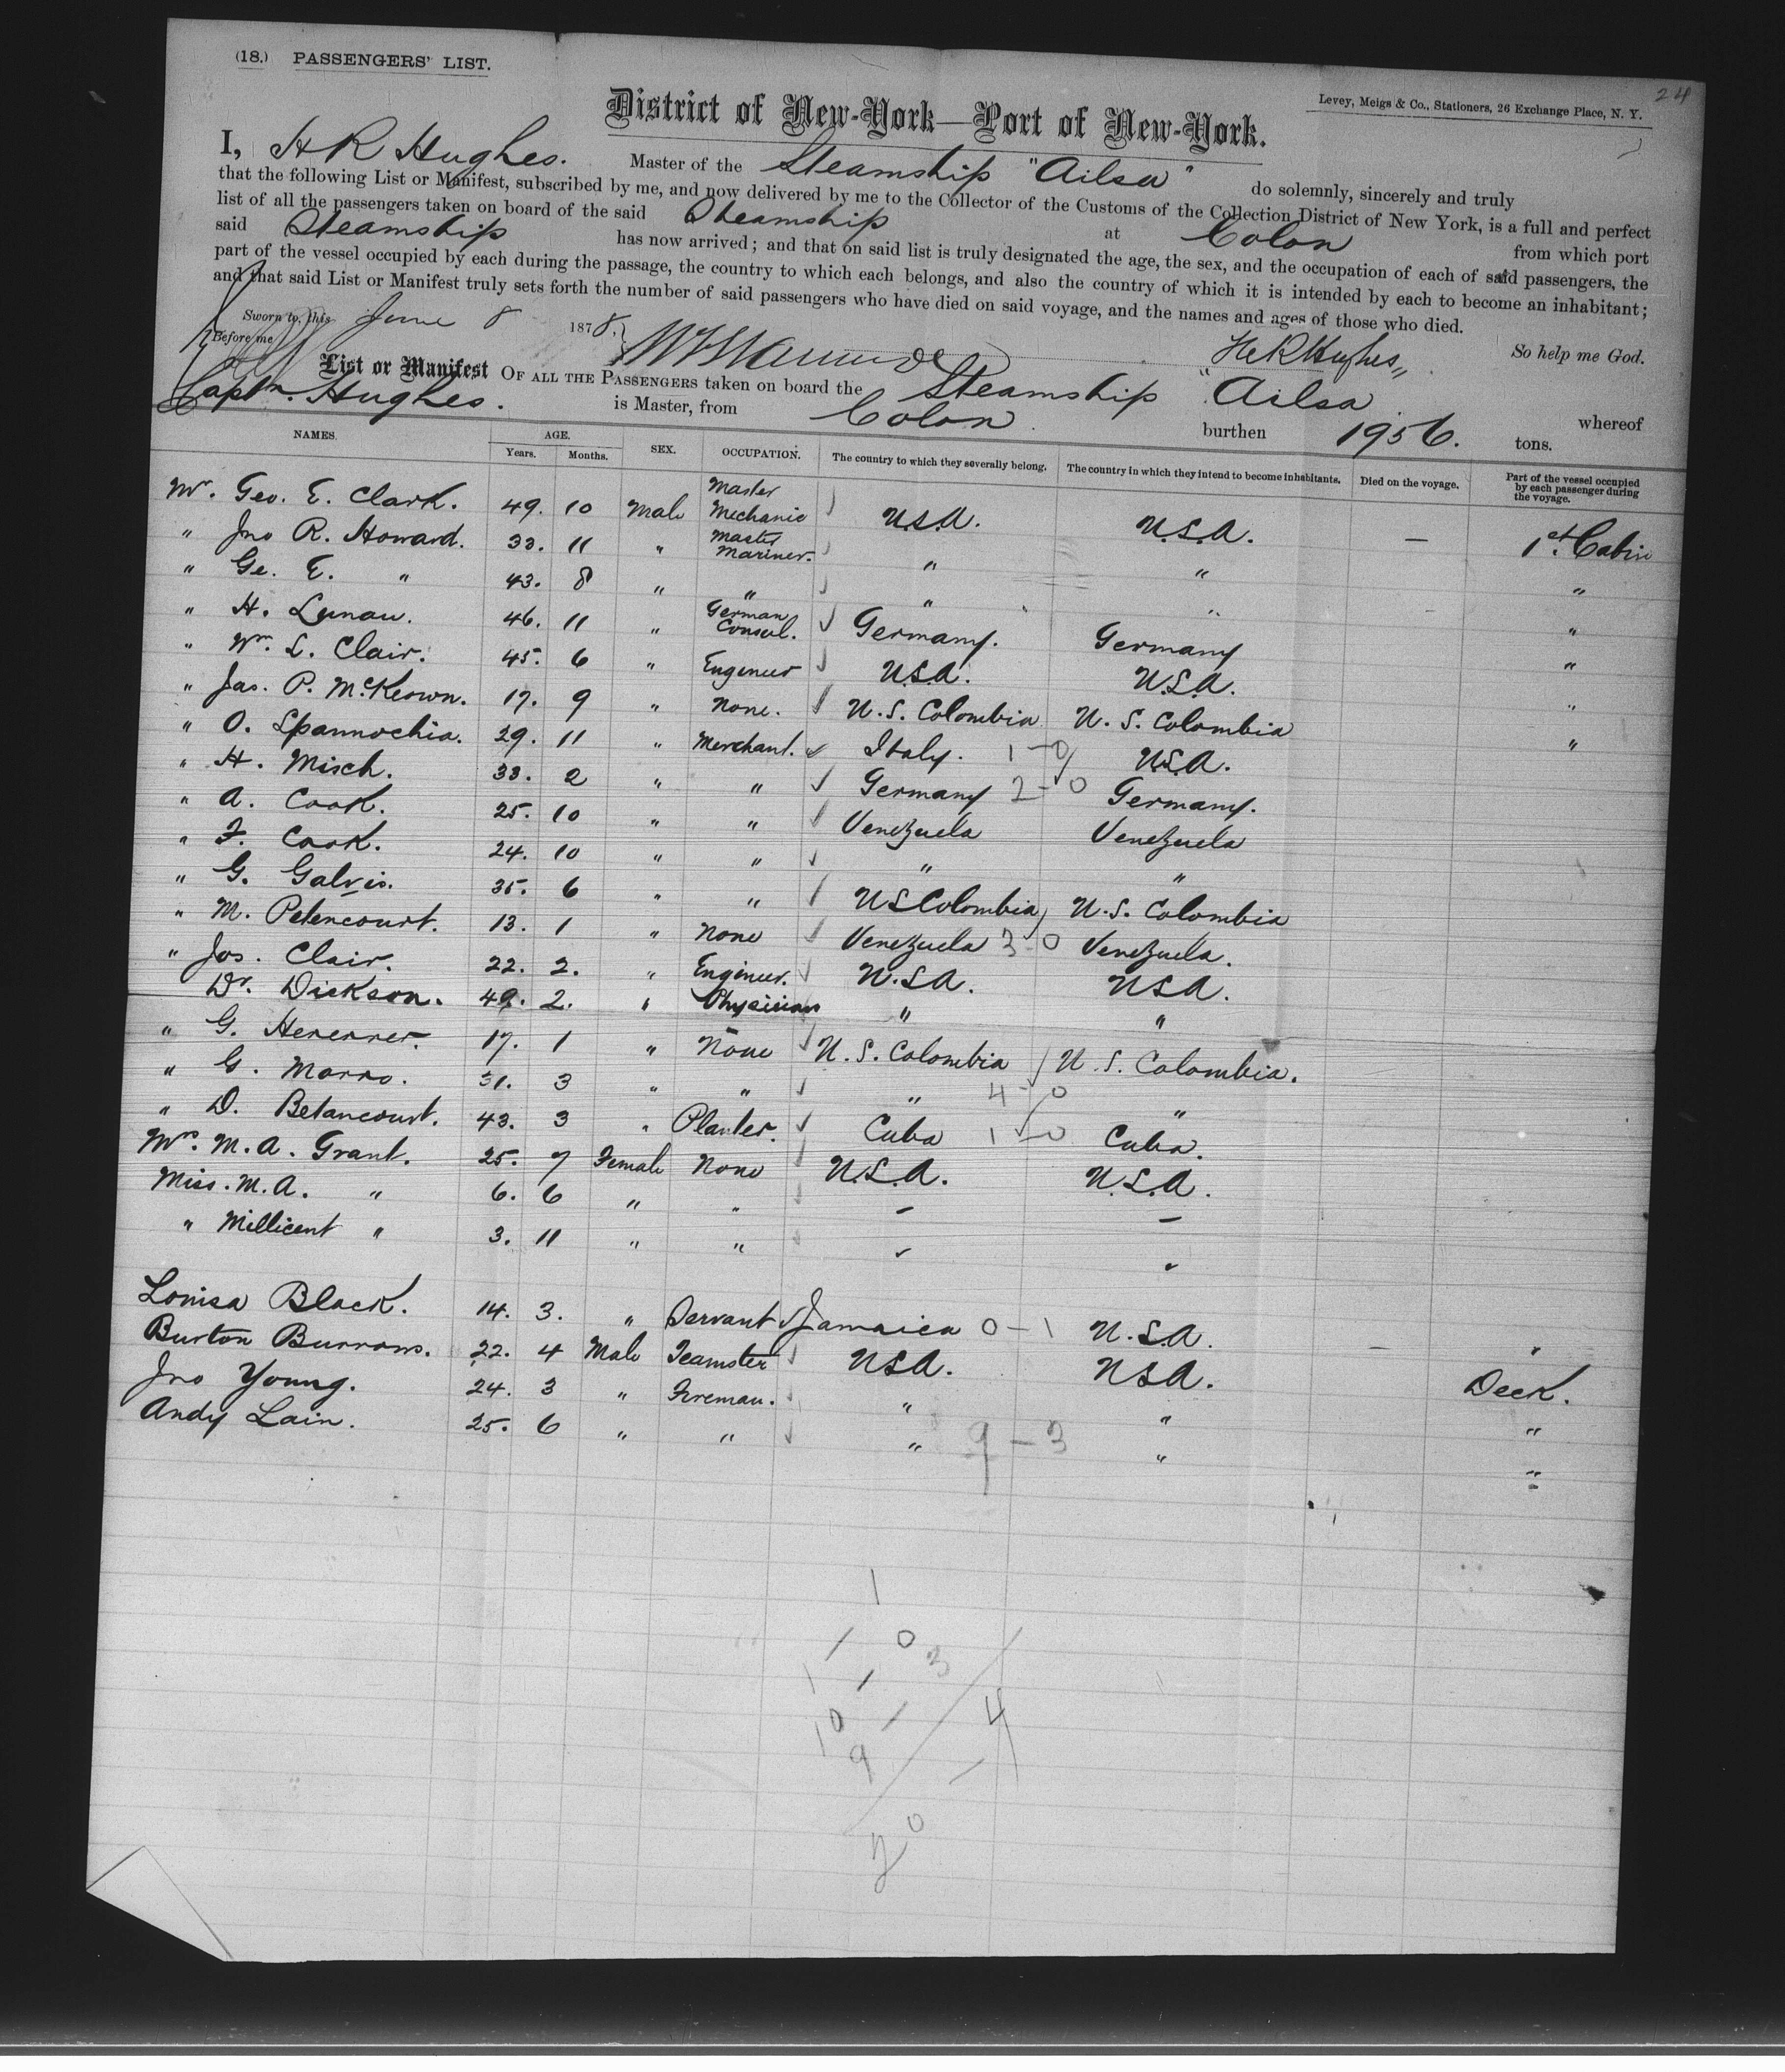 24
(18.) PASSENGERS' LIST.
Levey, Meigs & Co., Stationers, 26 Exchange Place, N. Y.
District of New-York—Port of New-York.
I, H R Hughes. Master of the Steamship "Ailsa" do solemnly, sincerely and truly
that the following List or Manifest, subscribed by me, and now delivered by me to the Collector of the Customs of the Collection District of New York, is a full and perfect
list of all the passengers taken on board of the said Steamship at Colon from which port
said Steamship has now arrived; and that on said list is truly designated the age, the sex, and the occupation of each of said passengers, the
part of the vessel occupied by each during the passage, the country to which each belongs, and also the country of which it is intended by each to become an inhabitant;
and that said List or Manifest truly sets forth the number of said passengers who have died on said voyage, and the names and ages of those who died.
Sworn to, this June 8 1878, So help me God.
Before me
List or Manifest OF ALL THE PASSENGERS taken on board the Steamship "Ailsa" whereof
Captn. Hughes. is Master, from Colon burthen 1956. tons.
NAMES. AGE. Years. Months. SEX. OCCUPATION. The country to which they severally belong. The country in which they intend to become inhabitants. Died on the voyage. Part of the vessel occupied by each passenger during the voyage.
Mr. Geo. E. Clark. 49. 10 Male Master Mechanic U.S.A. U.S.A. — 1st. Cabin
" Jno R. Howard. 33. 11 " Master Mariner. " " "
" Ge. E. " 43. 8 " " " " "
" H. Lunau. 46. 11 " German Consul. Germany. Germany "
" Wm. L. Clair. 45. 6 " Engineer U.S.A. U.S.A. "
" Jas. P. McKeown. 17. 9 " None. U.S. Colombia U.S. Colombia "
" O. Spannochia. 29. 11 " Merchant. Italy. 1-0 U.S.A.
" H. Misch. 33. 2 " " Germany 2-0 Germany.
" A. Cook. 25. 10 " " Venezuela Venezuela
" F. Cook. 24. 10 " " " "
" G. Galvis. 35. 6 " " U S Colombia U.S. Colombia
" M. Petencourt. 13. 1 " None Venezuela 3-0 Venezuela.
" Jos. Clair. 22. 2. " Engineer. U.S.A. U S A.
Dr. Dickson. 49. 2. " Physician " "
" G. Hererrer. 17. 1 " None U.S. Colombia U.S. Colombia.
" G. Marro. 31. 3 " " " 4-0 "
" D. Betancourt. 43. 3 " Planter. Cuba 1-0 Cuba.
Mrs. M.A. Grant. 25. 7 Female None U.S.A. U.S.A.
Miss. M.A. " 6. 6 " "
" Millicent " 3. 11 " "
Louisa Black. 14. 3. " Servant Jamaica 0-1 U.S.A.
Burton Burrows. 22. 4 Male Teamster U S A. U S A. — Deck.
Jno Young. 24. 3 " Fireman. " " "
Andy Lain. 25. 6 " " " 9-3 " "